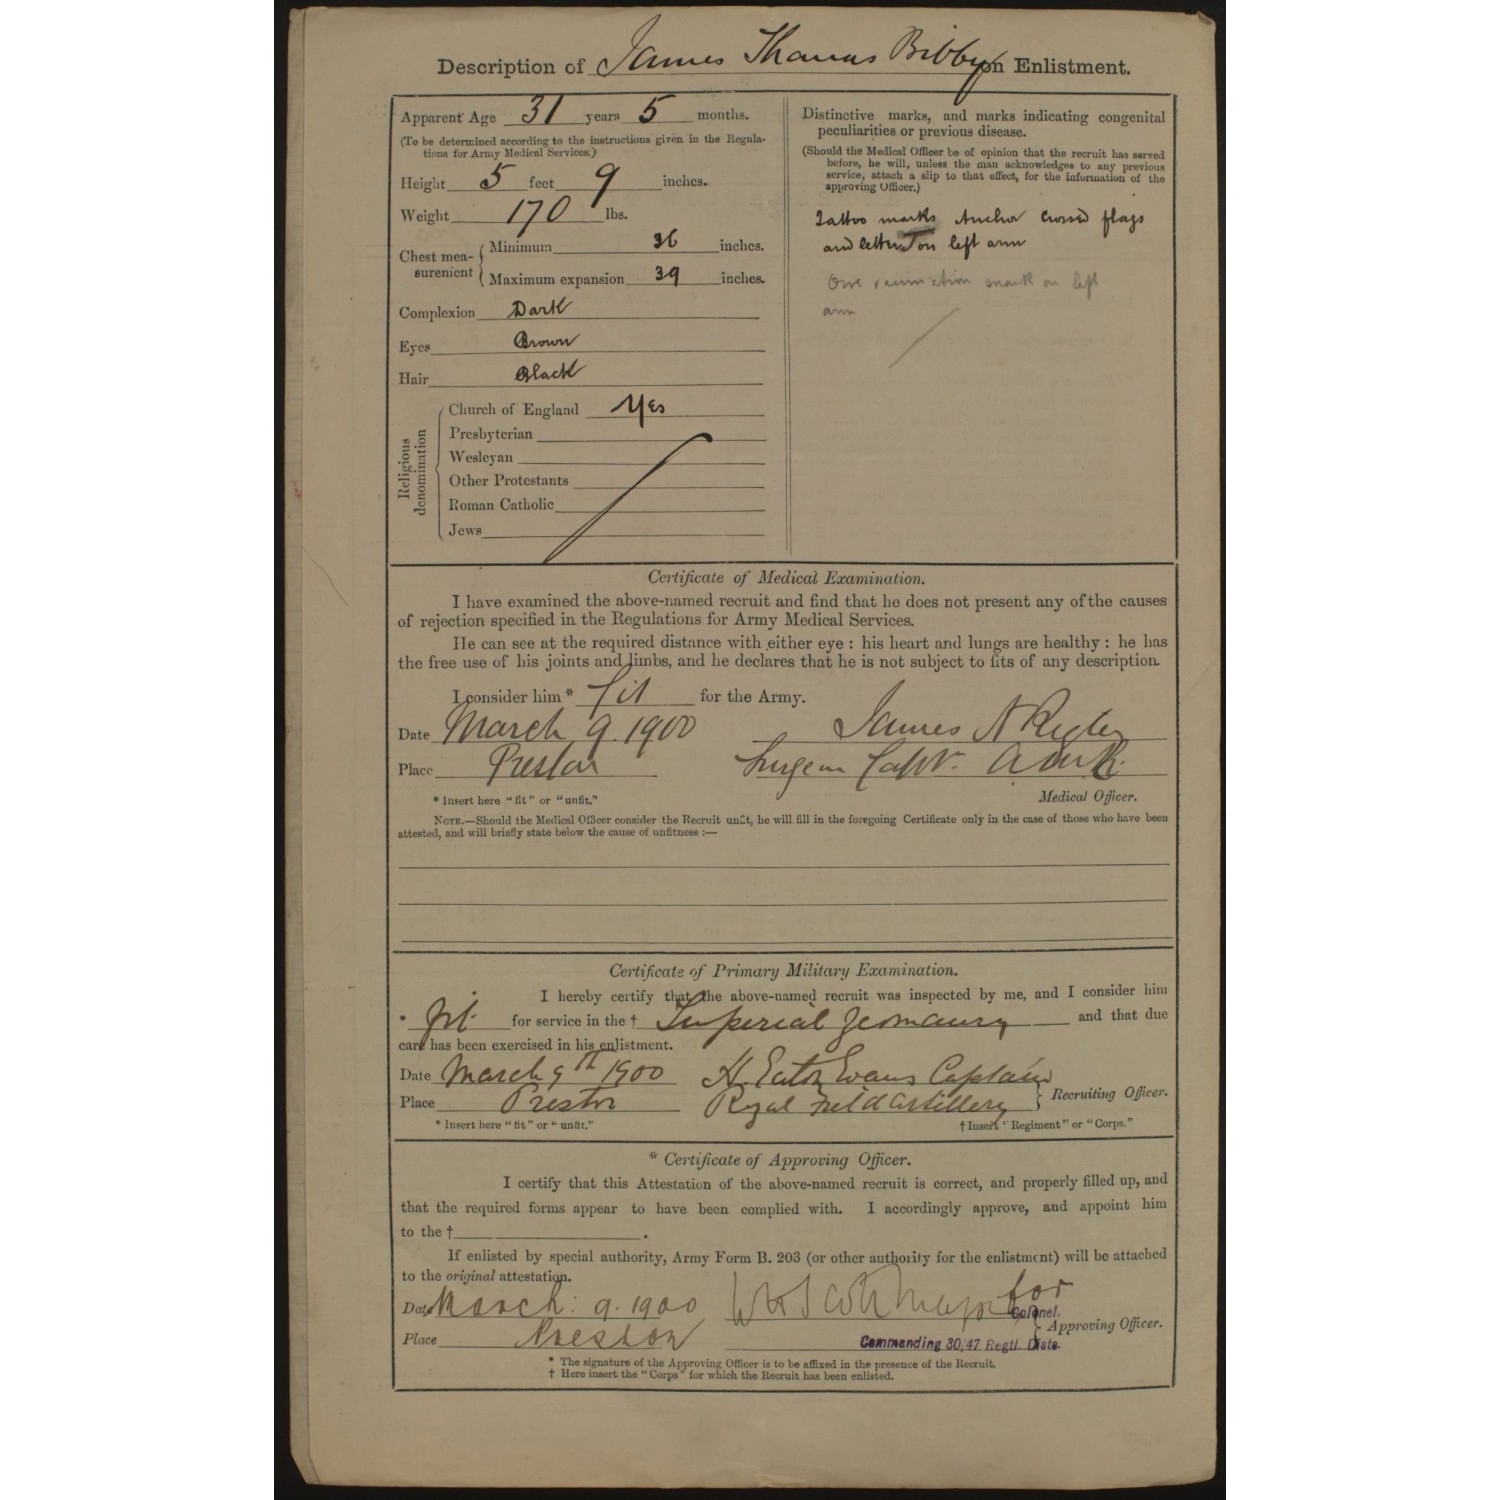 Description of James Thomas Bibby on Enlistment.
Apparent Age 31 years 5 months.
(To be determined according to the instructions given in the Regula-
tions for Army Medical Services.)
Height 5 feet 9 inches.
Weight 170 lbs.
Chest mea-
surement
Minimum 36 inches.
Maximum expansion 39 inches.
Complexion Dark
Eyes Brown
Hair Black
Religious
denomination
Church of England Yes
Presbyterian
Wesleyan
Other Protestants
Roman Catholic
Jews
Distinctive marks, and marks indicating congenital
peculiarities or previous disease.
(Should the Medical Officer be of opinion that the recruit has served
before, he will, unless the man acknowledges to any previous
service, attach a slip to that effect, for the information of the
approving Officer.)
Tattoo marks Anchor Crossed flags
and letter J on left arm
One vaccination mark on left
arm
Certificate of Medical Examination.
I have examined the above-named recruit and find that he does not present any of the causes
of rejection specified in the Regulations for Army Medical Services.
He can see at the required distance with either eye : his heart and lungs are healthy : he has
the free use of his joints and limbs, and he declares that he is not subject to fits of any description.
I consider him * fit for the Army.
Date March 9. 1900 James A Rigby
Place Preston Surgeon Capt.
* Insert here "fit" or "unfit." Medical Officer.
NOTE.—Should the Medical Officer consider the Recruit unfit, he will fill in the foregoing Certificate only in the case of those who have been
attested, and will briefly state below the cause of unfitness :—
Certificate of Primary Military Examination.
I hereby certify that the above-named recruit was inspected by me, and I consider him
* fit for service in the † Imperial Yeomanry and that due
care has been exercised in his enlistment.
Date March 9th 1900 H. Eaton Evans Captain
Place Preston Royal Field Artillery Recruiting Officer.
* Insert here "fit" or "unfit." † Insert "Regiment" or "Corps."
* Certificate of Approving Officer.
I certify that this Attestation of the above-named recruit is correct, and properly filled up, and
that the required forms appear to have been complied with. I accordingly approve, and appoint him
to the † .
If enlisted by special authority, Army Form B. 203 (or other authority for the enlistment) will be attached
to the original attestation.
Date March: 9. 1900 Major for
Colonel.
Approving Officer.
Place Preston Commanding 30/47 Regtl. Dists.
* The signature of the Approving Officer is to be affixed in the presence of the Recruit.
† Here insert the "Corps" for which the Recruit has been enlisted.